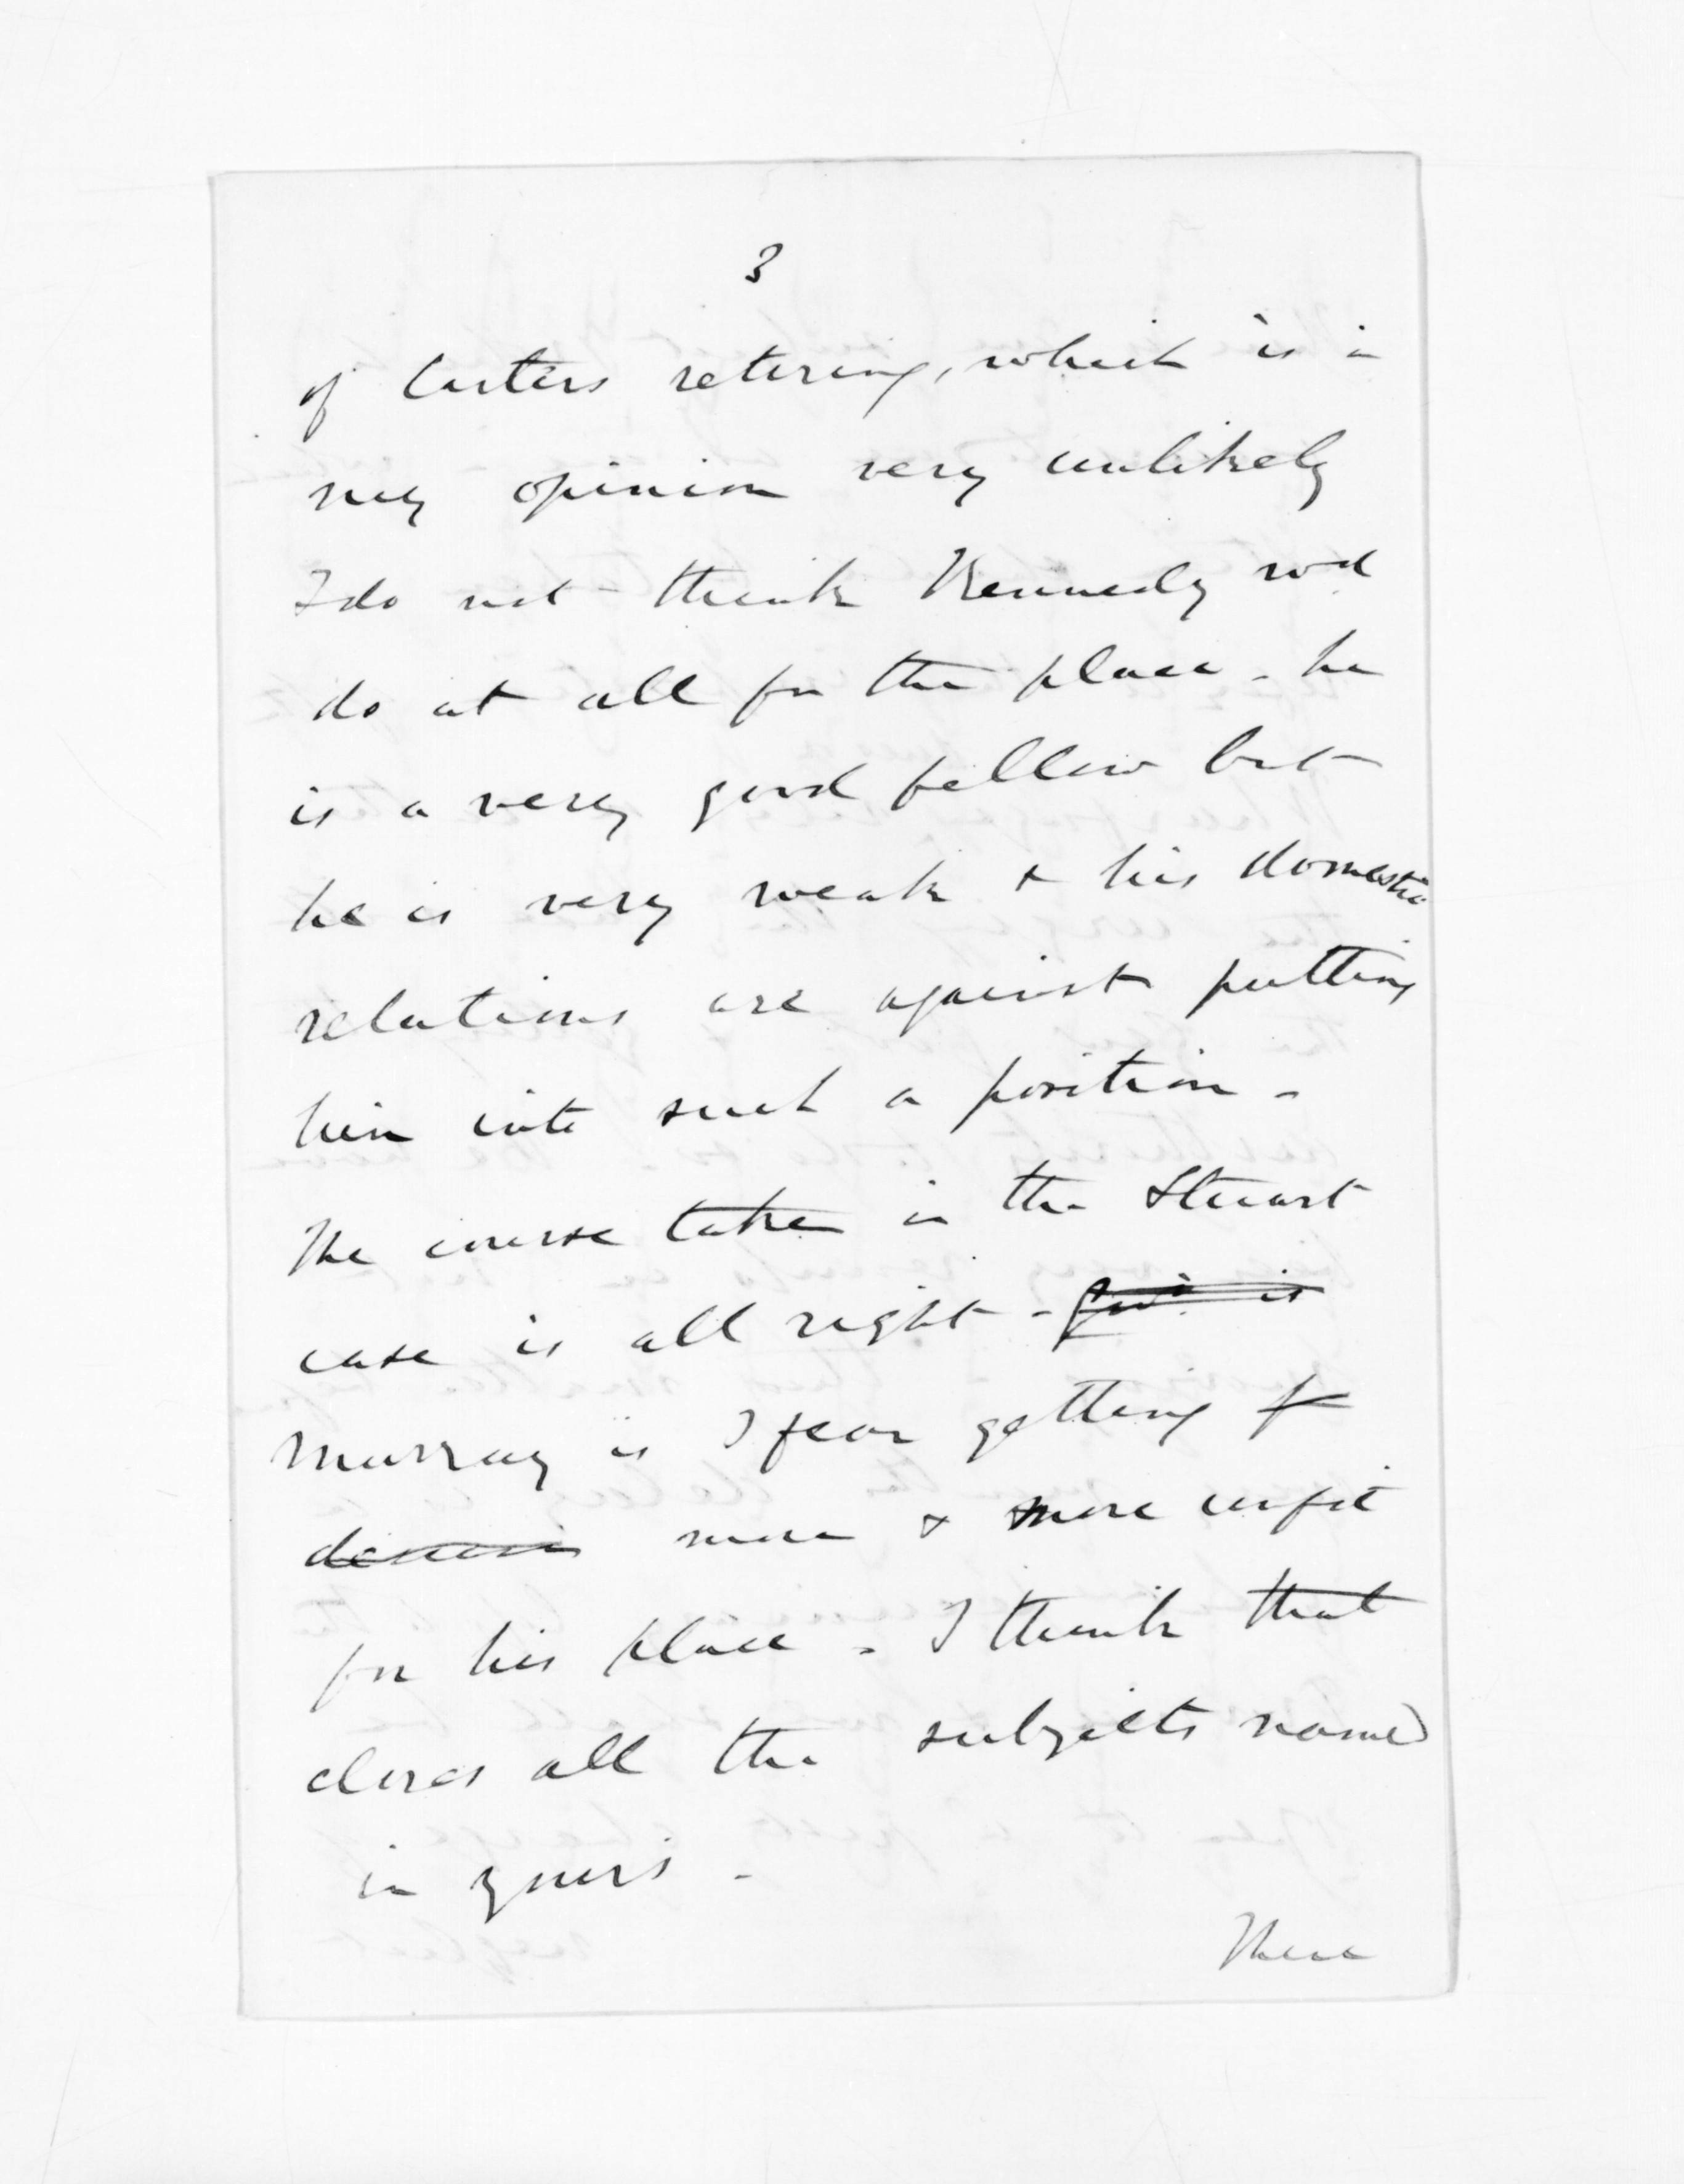 3
of Carters retiring, which is in
my opinion very unlikely
I do not think Kennedy wd
do at all for the place - he
is a very good fellow but
he is very weak & his domestic
relations are against putting
him into such a position -
The course taken in the Stuart
case is all right -
Murray is I fear getting
more & more unfit
for his place - I think that
closes all the subjects named
in yours -
There